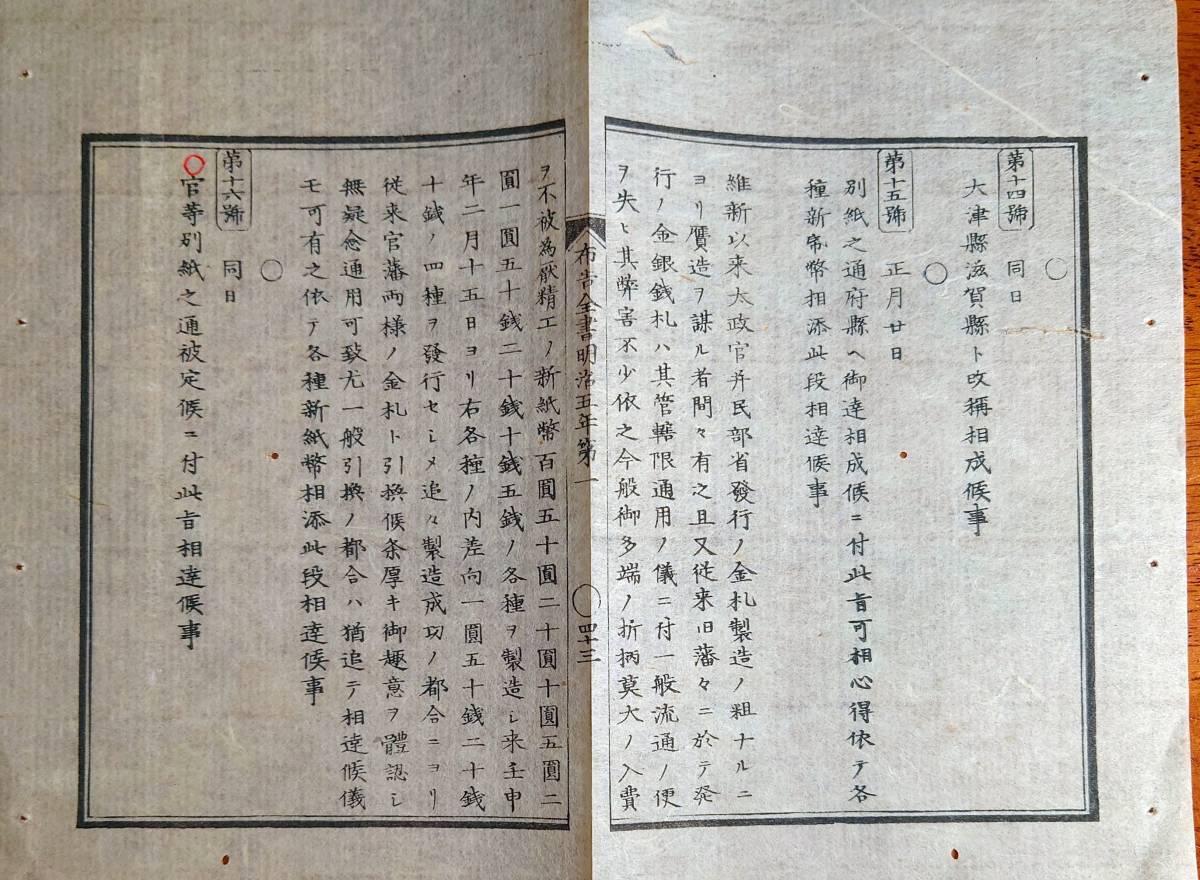 第十四號 同日
大津縣滋賀縣ト改稱相成候事
第十五號 正月廿日
別紙之通府縣ヘ御達相成候ニ付此旨可相心得依テ各
種新紙幣相添此段相達候事
維新以来太政官并民部省發行ノ金札製造ノ粗ナルニ
ヨリ贋造ヲ謀ル者間々有之且又従来旧藩々ニ於テ発
行ノ金銀錢札ハ其管轄限通用ノ儀ニ付一般流通ノ便
ヲ失ヒ其弊害不少依之今般御多端ノ折柄莫大ノ入費
布告全書明治五年第一 四十三
ヲ不被為厭精工ノ新紙幣百圓五十圓二十圓十圓五圓二
圓一圓五十錢二十錢十錢五錢ノ各種ヲ製造シ来壬申
年二月十五日ヨリ右各種ノ内差向一圓五十錢二十錢
十錢ノ四種ヲ發行セシメ追々製造成功ノ都合ニヨリ
従来官藩両様ノ金札ト引換候条厚キ御趣意ヲ體認シ
無疑念通用可致尤一般引換ノ都合ハ猶追テ相達候儀
モ可有之依テ各種新紙幣相添此段相達候事
第十六號 同日
官等別紙之通被定候ニ付此旨相達候事